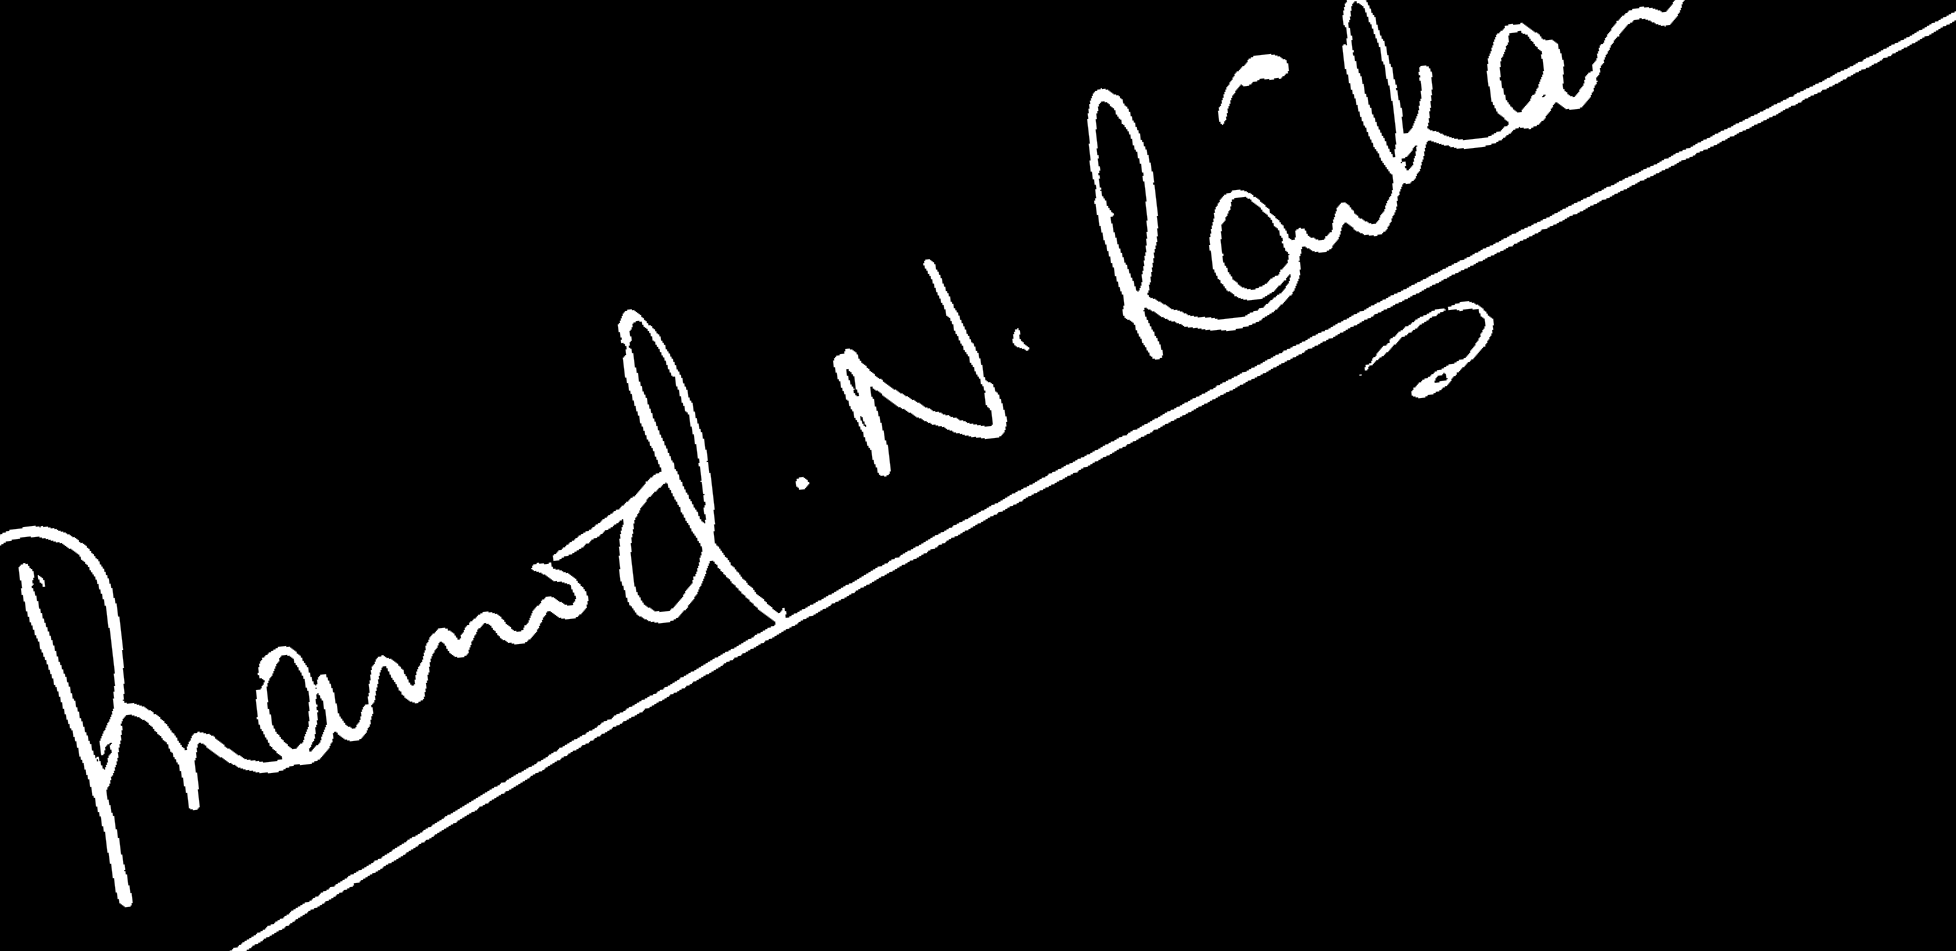 Pramod. N. Rankan